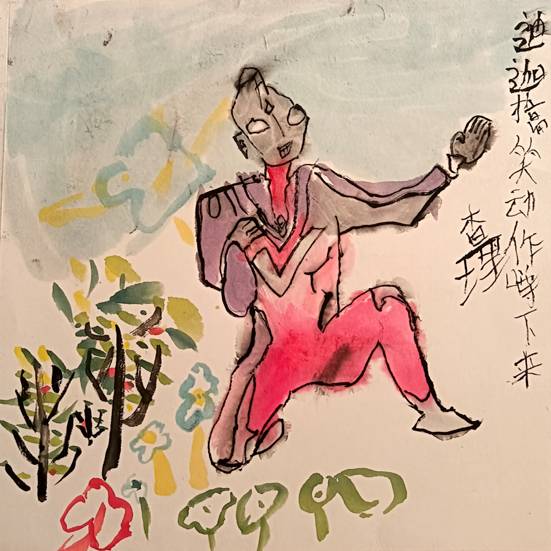 迪迦搞笑动作蹲下来
查理